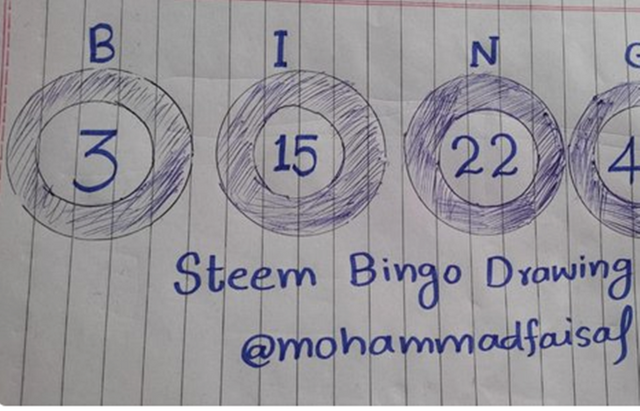 B I N G
3 15 22 4
Steem Bingo Drawing
@mohammadfaisal